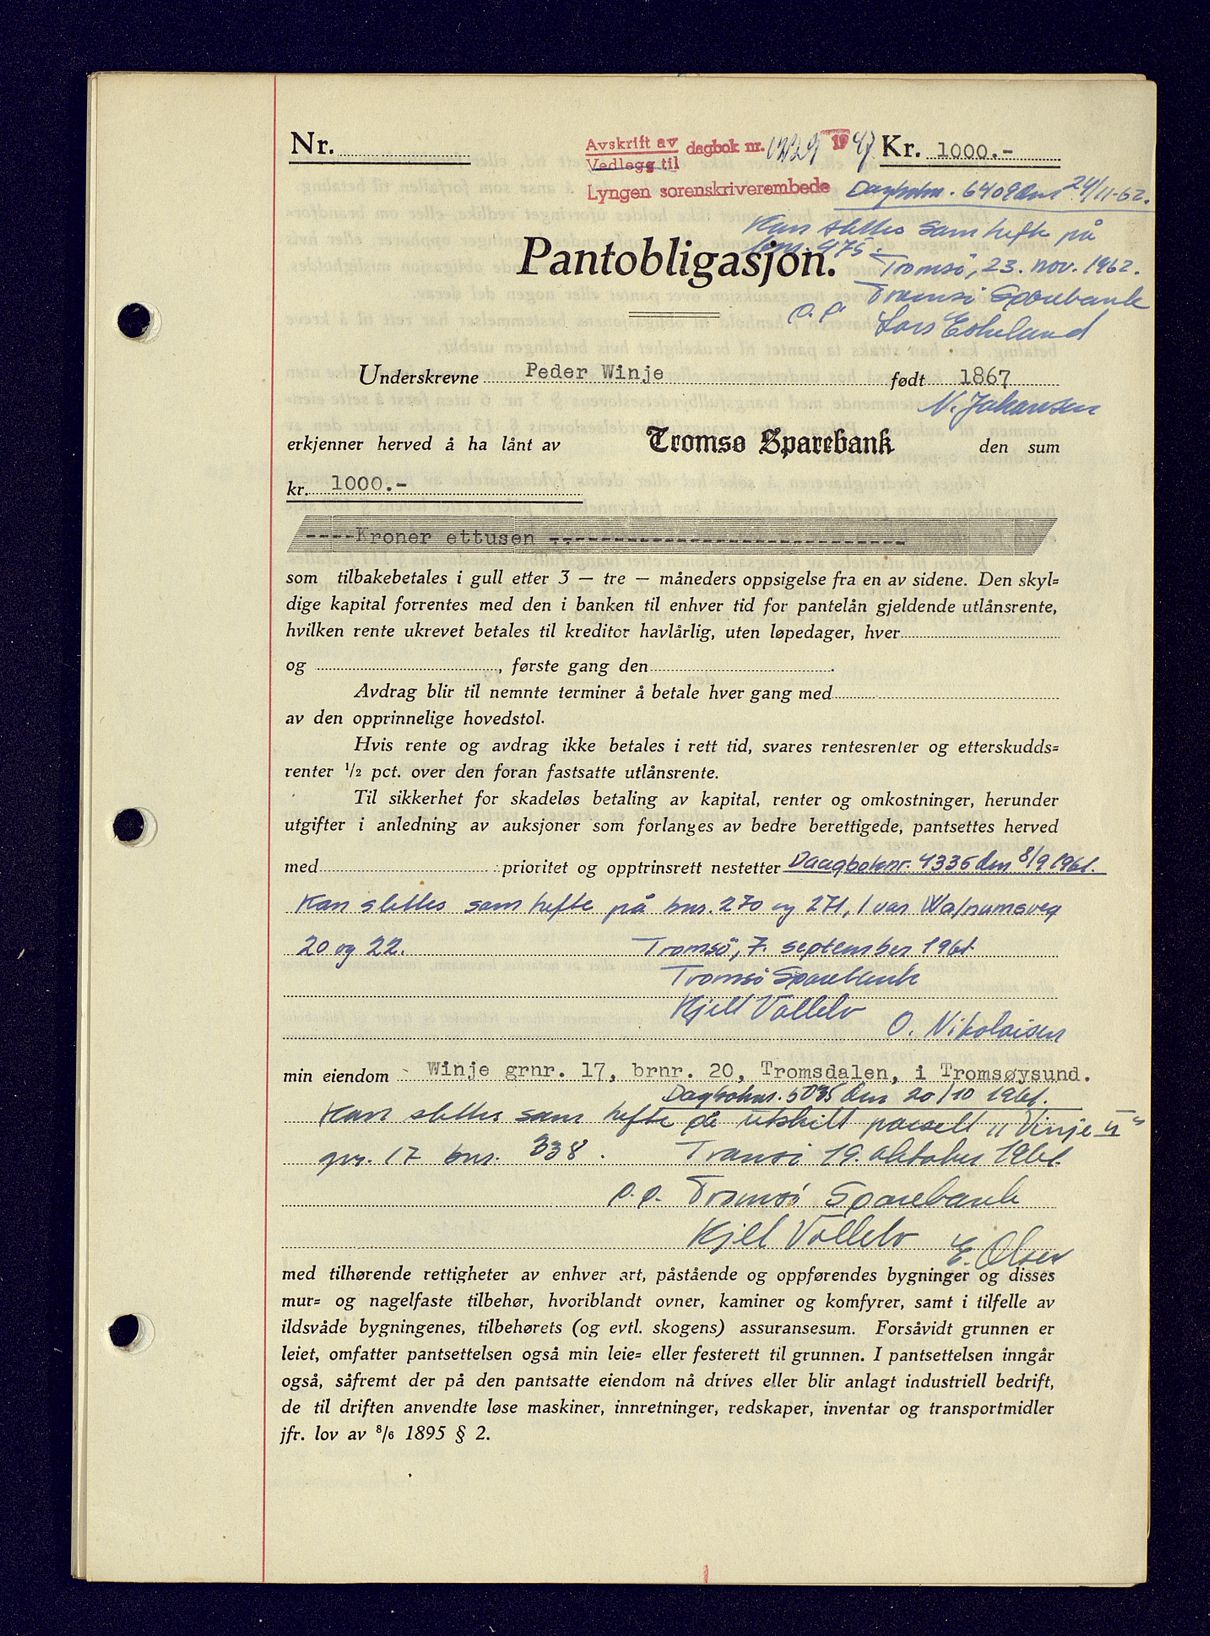 Nr.
Avskrift av
Vedlegg til
dagbok nr. 1229 1947
Lyngen sorenskriverembede
Kr. 1000.-
Dagboknr. 6409 den 24/11-62.
Kan slettes som hefte på
bnr. 975.
Tromsø, 23. nov. 1962.
Pantobligasjon.
p.p. Tromsø Sparebank
Lars Eskeland
Underskrevne Peder Winje født 1867
N. Johansen
erkjenner herved å ha lånt av Tromsø Sparebank den sum
kr. 1000.-
----Kroner ettusen ----------------------------
som tilbakebetales i gull etter 3 — tre — måneders oppsigelse fra en av sidene. Den skyl=
dige kapital forrentes med den i banken til enhver tid for pantelån gjeldende utlånsrente,
hvilken rente ukrevet betales til kreditor havlårlig, uten løpedager, hver
og , første gang den
Avdrag blir til nemnte terminer å betale hver gang med
av den opprinnelige hovedstol.
Hvis rente og avdrag ikke betales i rett tid, svares rentesrenter og etterskudds=
renter 1/2 pct. over den foran fastsatte utlånsrente.
Til sikkerhet for skadeløs betaling av kapital, renter og omkostninger, herunder
utgifter i anledning av auksjoner som forlanges av bedre berettigede, pantsettes herved
med prioritet og opptrinsrett nestetter Daagboknr. 4335 den 8/9 1961.
Kan slettes som hefte på bnr. 270 og 271, Ivar Walnumsveg
20 og 22. Tromsø, 7. september 1961
Tromsø Sparebank
Kjell Vollelv O. Nikolaisen
min eiendom Winje grnr. 17, brnr. 20, Tromsdalen, i Tromsøysund.
Dagboknr. 5035 den 20/10 1961.
Kan slettes som hefte på utskilt parsell "Vinje II"
gnr. 17 bnr. 338. Tromsø 19. oktober 1961.
p.p. Tromsø Sparebank
Kjell Vollelv E. Olsen
med tilhørende rettigheter av enhver art, påstående og oppførendes bygninger og disses
mur= og nagelfaste tilbehør, hvoriblandt ovner, kaminer og komfyrer, samt i tilfelle av
ildsvåde bygningenes, tilbehørets (og evtl. skogens) assuransesum. Forsåvidt grunnen er
leiet, omfatter pantsettelsen også min leie= eller festerett til grunnen. I pantsettelsen inngår
også, såfremt der på den pantsatte eiendom nå drives eller blir anlagt industriell bedrift,
de til driften anvendte løse maskiner, innretninger, redskaper, inventar og transportmidler
jfr. lov av 8/6 1895 § 2.